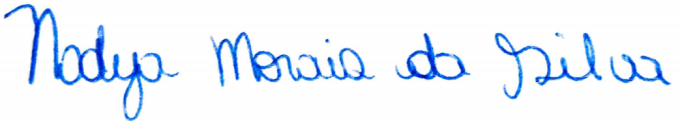 Nadya Morais da Silva